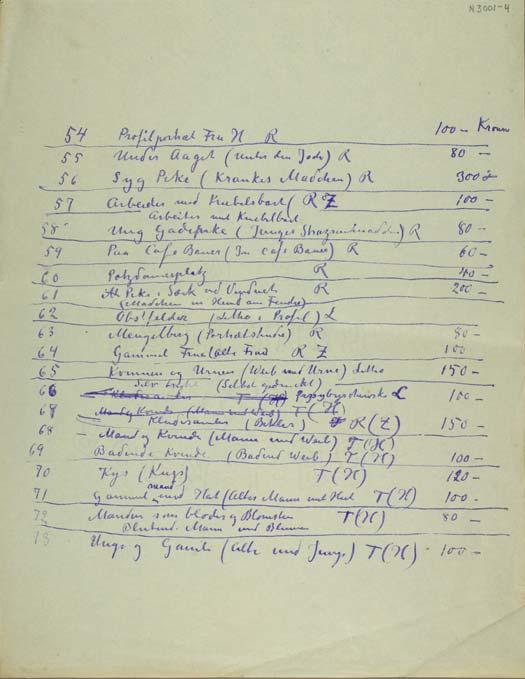 N3001-4
54 Profilportræt Fru H R 100 - Kroner
55 Under Aaget (Unter dem Joch) R 80 -
56 Syg Pike (Krankes Mädchen) R 300 -
57 Arbeider med Knebelsbart (R Z 100 -
Arbeiter mit Knebelbart
58 Ung Gadepike (Junges Strazenmädchen) R 80 -
59 Paa Café Bauer (Im Café Bauer) R 60 -
60 Potzdamerplatz R 40 -
61 Pike i Særk ved Vinduet R 200 -
(Mädchen im Hemd am Fenster)
62 Obstfelder (Litho i Profil) L
63 Mengelberg (Portrætstudie) R 80 -
64 Gammel Frue (alte Frau R Z 100
65 Kvinnen og Urnen (Weib und Urne) Litho 150 -
66 (Selbst gedruckt) L 100 -
67 T (H)
Klodsmanden (Bettler) R (Z) 150 -
68 Mand og Kvinde (Mann und Weib) T (H)
69 Badende Kvinde (Badend Weib) T (H) 100 -
70 Kys (Kuss) T (H) 120 -
mand
71 Gammel med Hat (Alter Mann mit Hut T (H) 100 -
72 Manden som bloder og Blomsten T (H) 80 -
Blutend. Mann und Blume
73 Unge og Gamle (Alte und Junge) T (H) 100 -